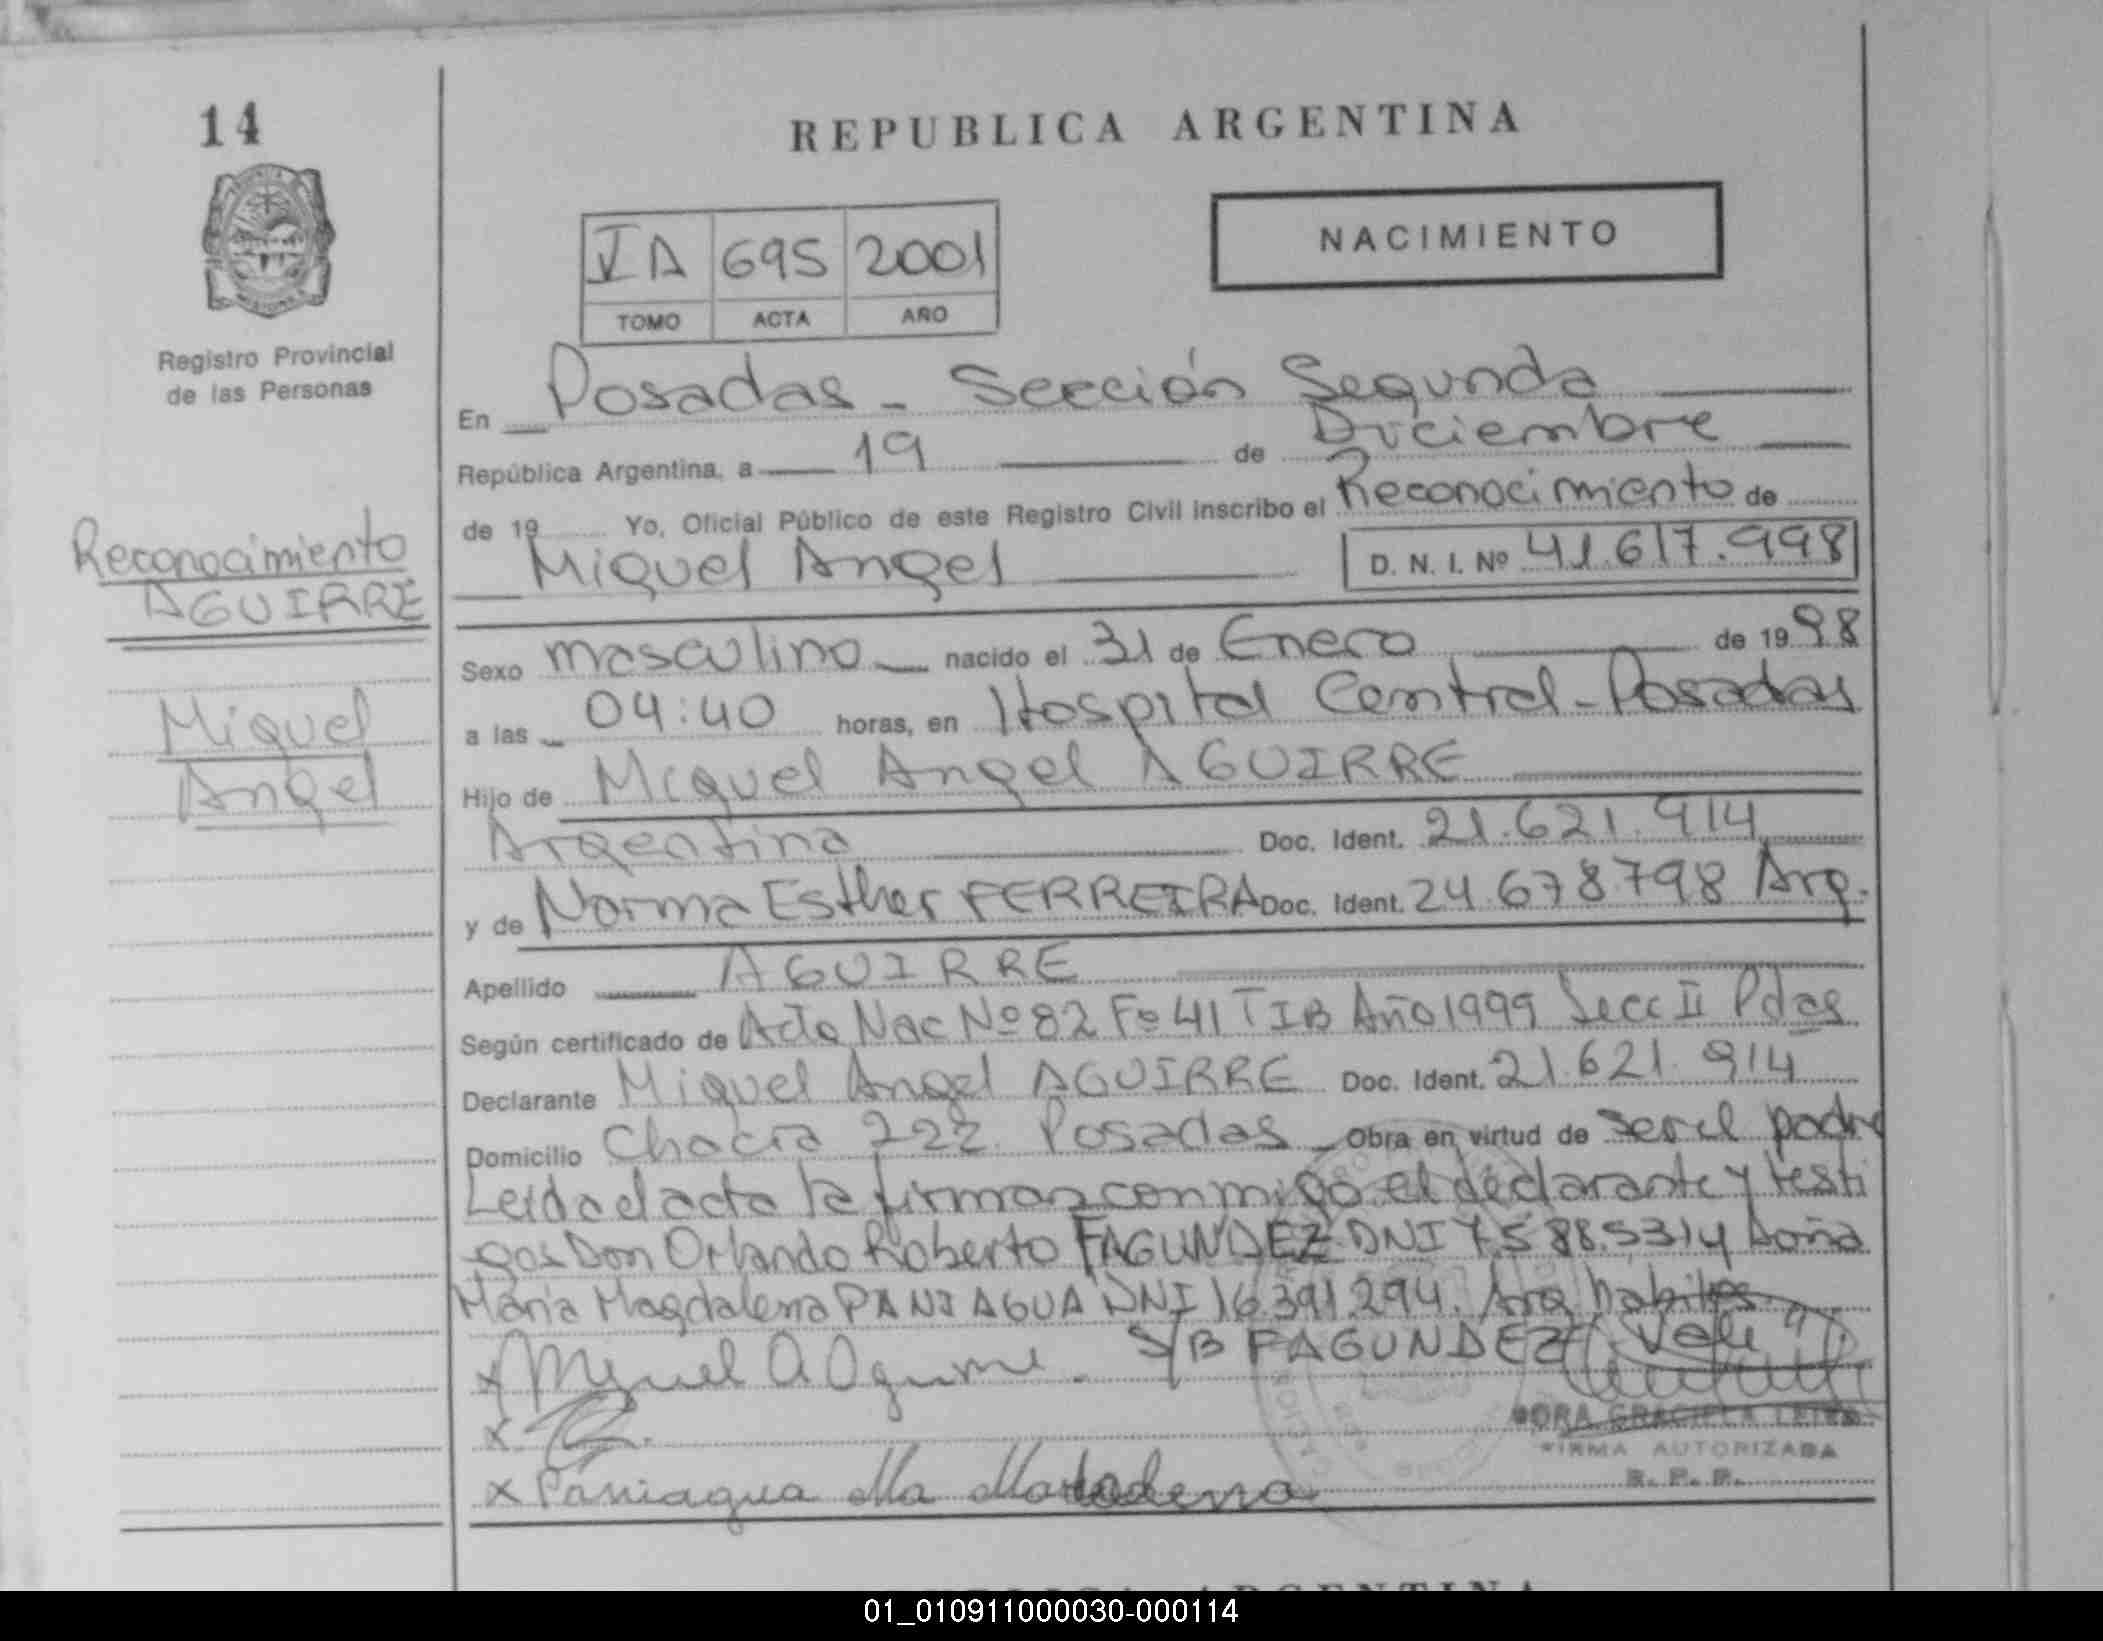 14
REPUBLICA ARGENTINA
NACIMIENTO
IA 695 2001
TOMO ACTA AÑO
Registro Provincial
de las Personas
Reconocimiento
AGUIRRE
Miguel
Angel
En Posadas - Sección Segunda
República Argentina, a 19 de Diciembre
de 19 Yo, Oficial Público de este Registro Civil inscribo el Reconocimiento de
Miguel Angel D. N. I. Nº 41.617.998
Sexo masculino nacido el 31 de Enero de 19 98
a las 04:40 horas, en Hospital Central - Posadas
Hijo de Miguel Angel AGUIRRE
Argentina Doc. Ident. 21.621.914
y de Norma Esther FERREIRA Doc. Ident. 24.678798 Arg.
Apellido AGUIRRE
Según certificado de Acta Nac Nº 82 Fº 41 T IB Año 1999 Secc II Pdas
Declarante Miguel Angel AGUIRRE Doc. Ident. 21.621.914
Domicilio Chacra 222 Posadas Obra en virtud de ser el padre
Leida el acta la firman conmigo el declarante y testi
gos Don Orlando Roberto FAGUNDEZ DNI 7.588.5314 Doña
Maria Magdalena PANIAGUA DNI 16.391.294. Arg habiles
S/B FAGUNDEZ "Vale"
x Miguel A Aguirre
x
x Paniagua Ma
DORA GRACIELA
FIRMA AUTORIZADA
R. P. P.
REPUBLICA ARGENTINA
01_010911000030-000114